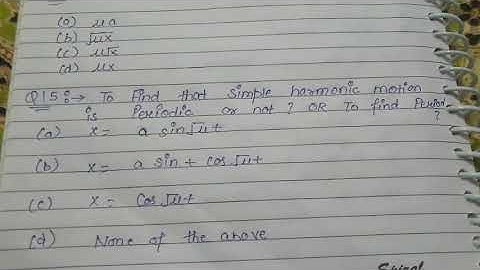 (a) μa
(b) √μx
(c) μ√x
(d) μx
Q15:→ To Find that simple harmonic motion
is Periodic or not? OR To find Period
?
(a) x = a sin√μt
(b) x = a sin + cos√μt
(c) x = cos√μt
(d) None of the above
Spiral